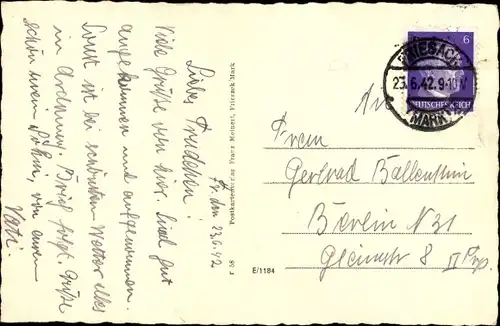 Fr. den 23.6.42
Liebes Trudchen!
Viele Grüße von hier. Sind gut
angekommen und aufgenommen.
Sonst ist bei schönstem Wetter alles
in Ordnung. Brief folgt. Grüße
schön meinen Söhn, von euren
Vati.
Postkartenverlag Franz Meinert, Friesack Mark
J 68
E/1184
6
FRIESACK
23.6.42.9-10V
(MARK)
DEUTSCHES REICH
An
Frau
Gertrud Ballenstin
Berlin N 31
Gleimstr 8 II